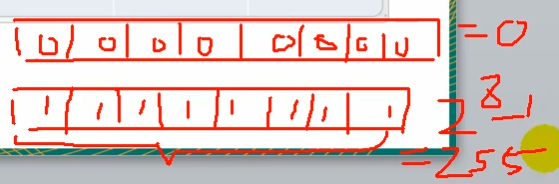 0 0 0 0 0 0 0 0 = 0
1 1 1 1 1 1 1 1 2^8-1
=255